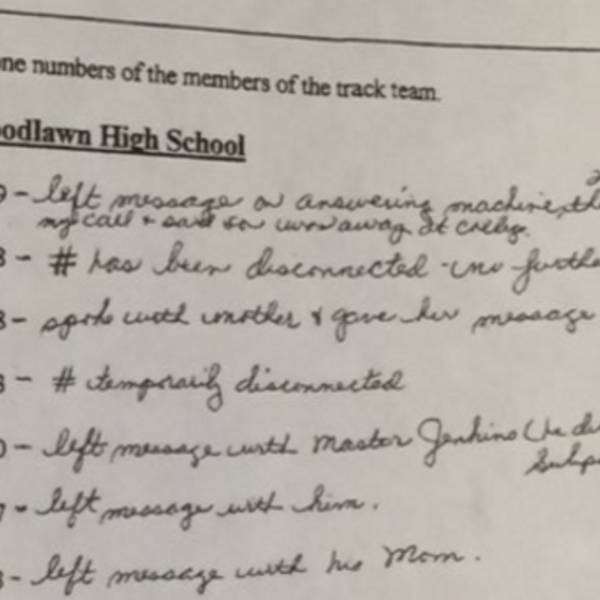 ne numbers of the members of the track team.
odlawn High School
9 - left message on answering machine, th
my call + said son was away at college.
8 - # has been disconnected - no furthe
8 - spoke with mother & gave her message
8 - # temporarily disconnected
0 - left message with Master Jenkins (he di
Subp
7 - left message with him.
8 - left message with his Mom.